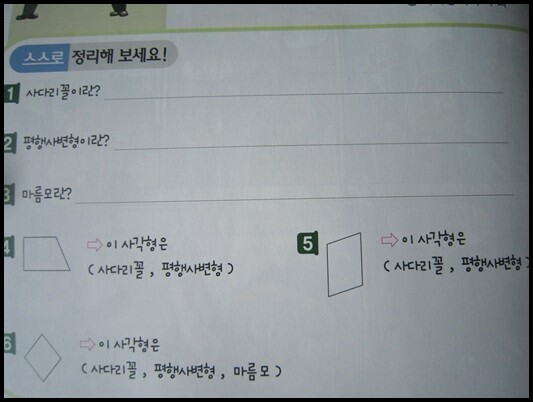 스스로 정리해 보세요!
1 사다리꼴이란?
2 평행사변형이란?
3 마름모란?
4 ⇨ 이 사각형은
( 사다리꼴 , 평행사변형 )
5 ⇨ 이 사각형은
( 사다리꼴 , 평행사변형 )
6 ⇨ 이 사각형은
( 사다리꼴 , 평행사변형 , 마름모 )